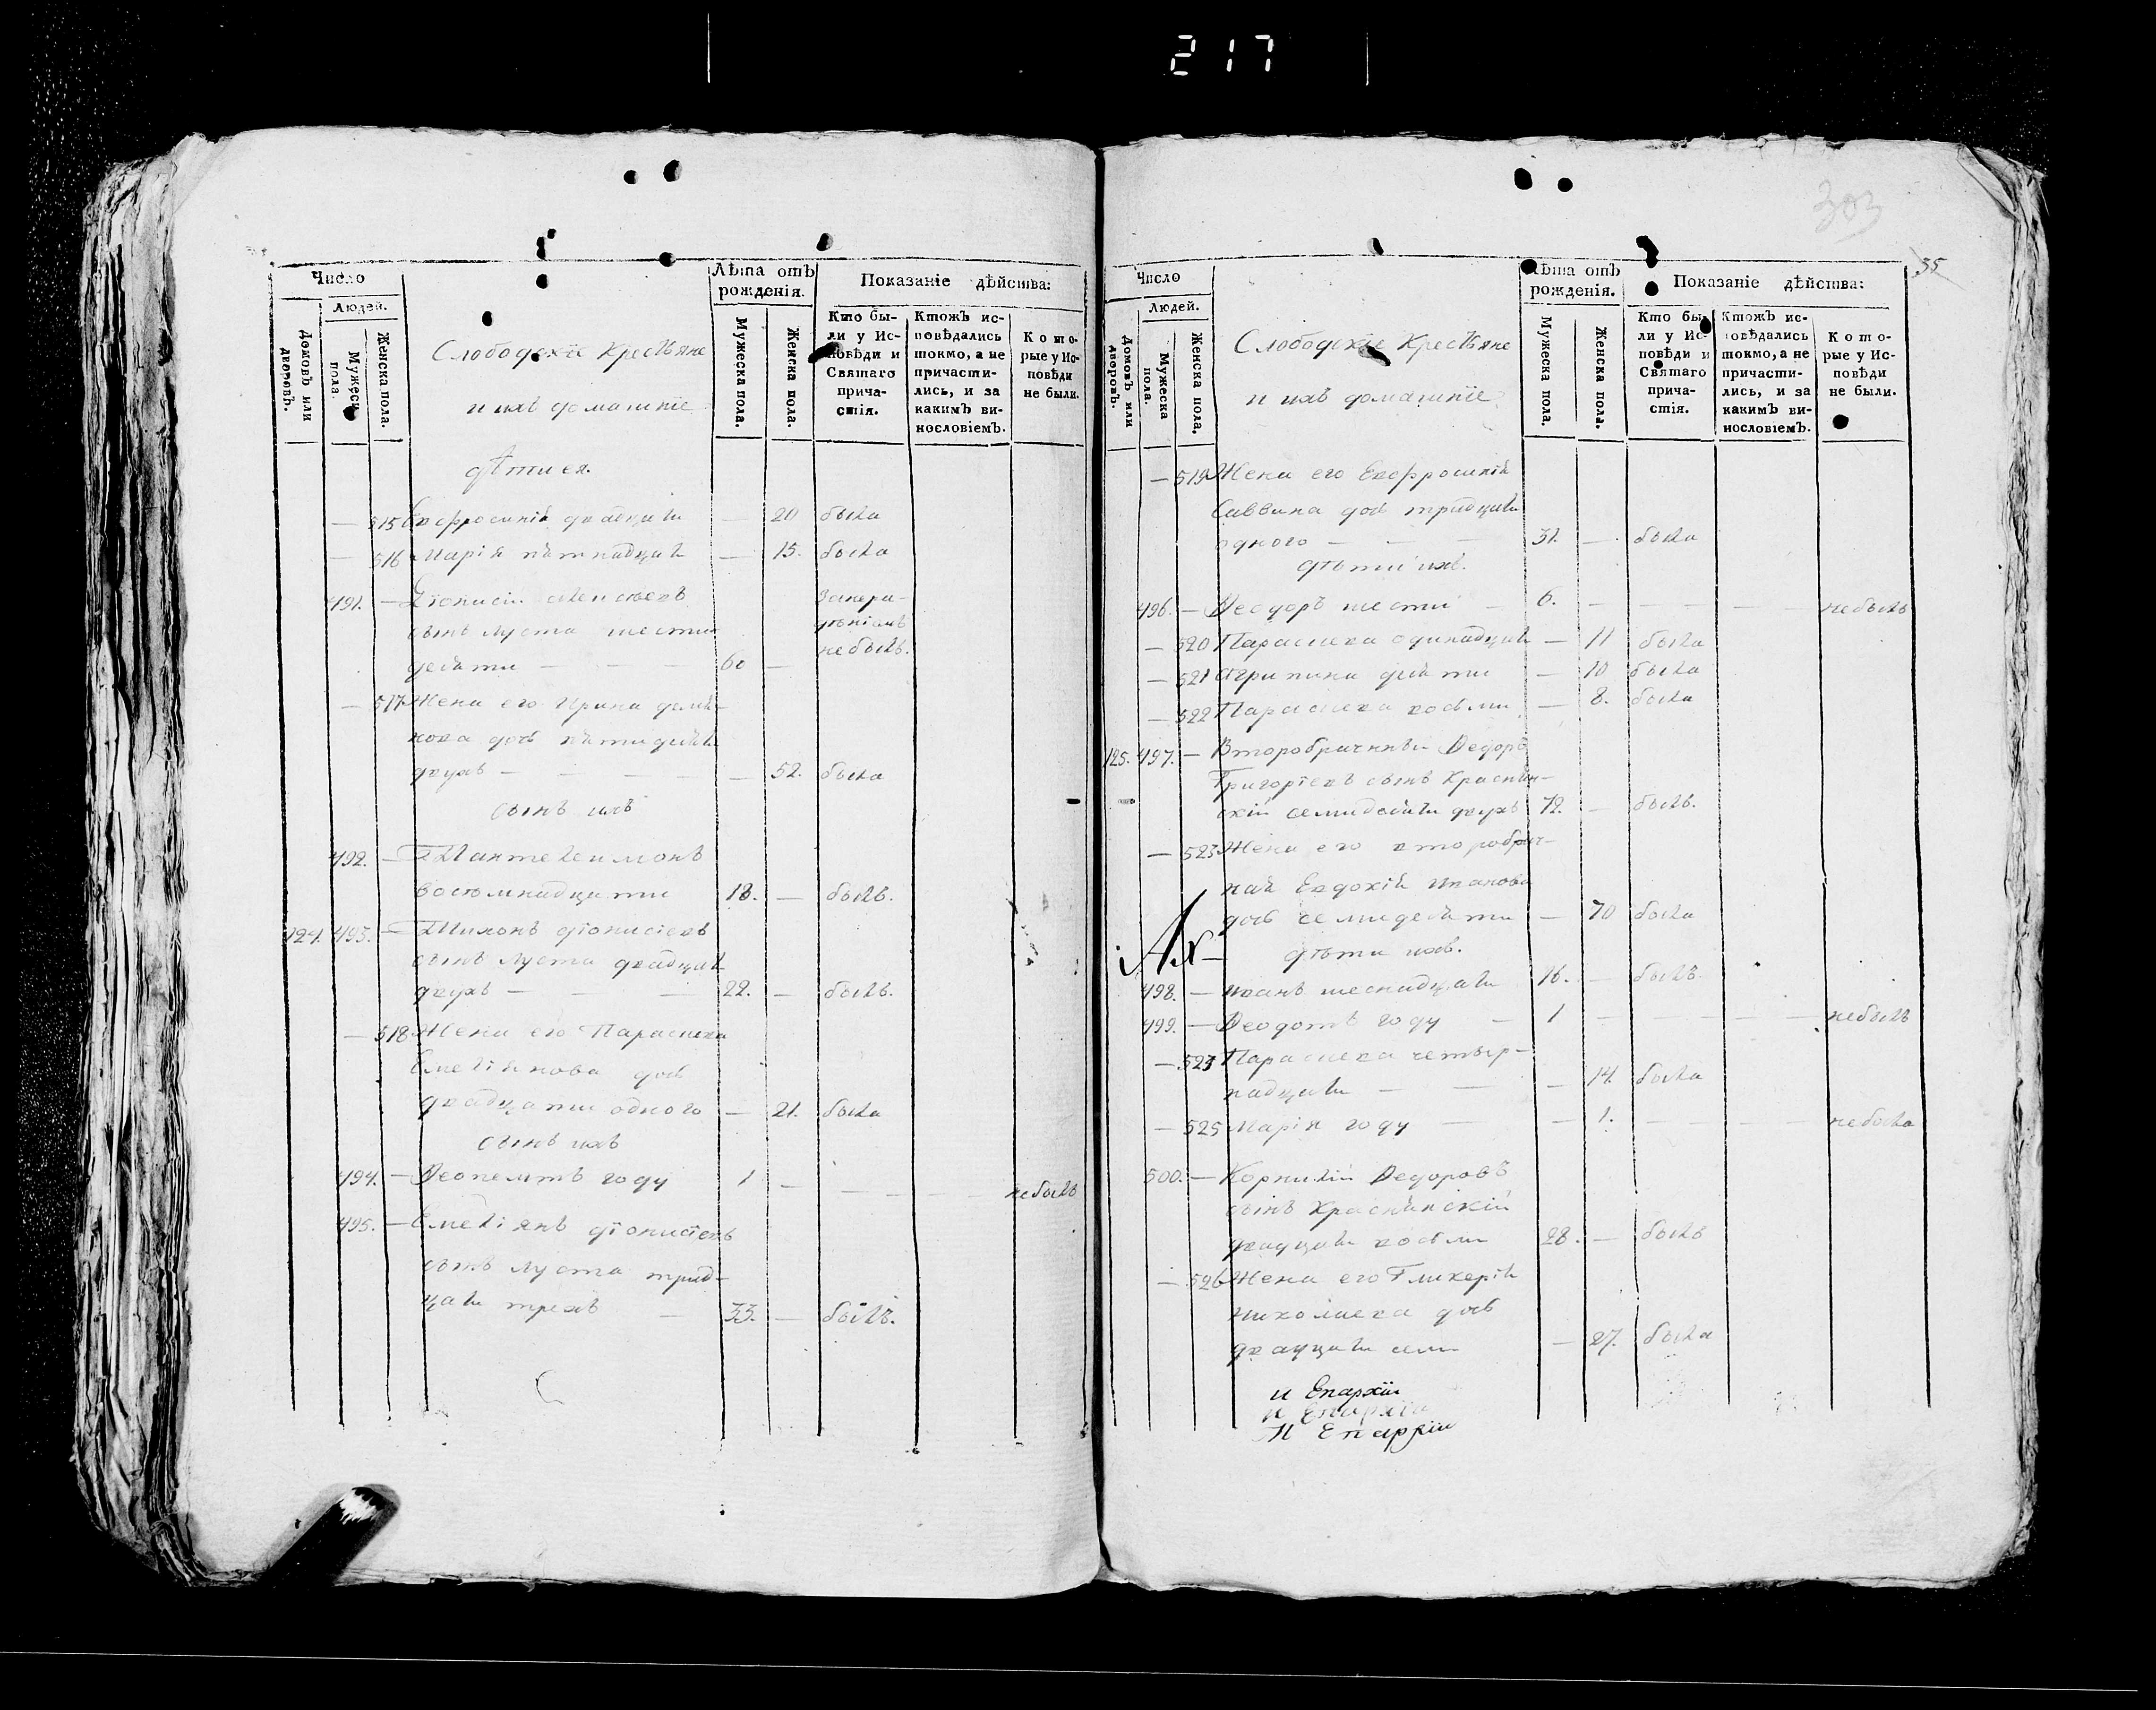 217
Число
Людей.
Домовъ или дворовъ.
Мужеска пола.
Женска пола.
Слободскіе Крестьяне
и ихъ домашніе
Лѣта отъ рожденія.
Мужеска пола.
Женска пола.
Показаніе дѣйства:
Кто были у Исповѣди и Святаго причастія.
Ктожъ исповѣдались токмо, а не причастились, и за какимъ винословіемъ.
Которые у Исповѣди не были.
дѣти ея.
— 515 Евфросинія двадцати — 20 была
— 516 Марія пятнадцати — 15. была
491. — Діонисій
сынъ Луста шести-
десяти — — — 60 — не былъ.
— 517 Жена его Ирина демя-
нова дочь пятидесяти
двухъ — — — — — 52. была
сынъ ихъ
492. — Пантелеимонъ
восемнадцати 18. — былъ.
124. 493. — Діонисіевъ
сынъ Луста двадцати
двухъ — — — 22. — былъ.
— 518 Жена его Параскева
Емеліянова дочь
двадцати одного — 21. была
сынъ ихъ
494. — Феопемптъ году 1 — — — — не былъ
495. — Емеліянъ Діонисіевъ
сынъ Луста трид-
цати трехъ — 33. — былъ.
303
35
Число
Людей.
Домовъ или дворовъ.
Мужеска пола.
Женска пола.
Слободскіе Крестьяне
и ихъ домашніе
Лѣта отъ рожденія.
Мужеска пола.
Женска пола.
Показаніе дѣйства:
Кто были у Исповѣди и Святаго причастія.
Ктожъ исповѣдались токмо, а не причастились, и за какимъ винословіемъ.
Которые у Исповѣди не были.
— 519 Жена его Евфросинія
Саввина дочь тридцати
одного — — — 31. — была
дѣти ихъ.
496. — Феодоръ шести — 6. — — — — не былъ
— 520 Параскева одинадцати — 11 была
— 521 Агрипина десяти — 10 была
— 522 Параскева восьми — 8. была
125. 497. — Второбрачный Федоръ
Григоріевъ сынъ Краснян-
скій семидесяти двухъ 72. — былъ.
— 523 Жена его второбрач-
ная Евдокія Иванова
дочь семидесяти — 70 была
дѣти ихъ.
498. — Иванъ шеснадцати 16. — былъ
499. — Феодотъ году — 1 — — — — не былъ
— 523 Параскева четыр-
надцати — — — 14. была
— 525 Марія году — — 1. — — — не была
500. — Корнилій Федоровъ
сынъ Краснянскій
двадцати восьми 28. — былъ
— 526 Жена его Гликерія
Николаева дочь
двадцати семи — 27. была
и Епархіи
и Епархіи
И Епархіи